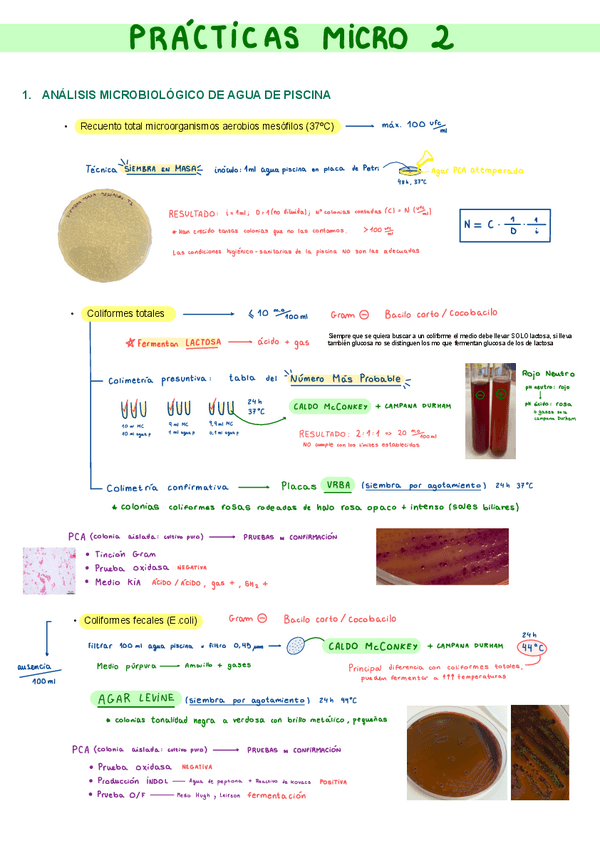 PRÁCTICAS MICRO 2
1. ANÁLISIS MICROBIOLÓGICO DE AGUA DE PISCINA
• Recuento total microorganismos aerobios mesófilos (37ºC) → máx. 100 ufc/ml
Técnica SIEMBRA EN MASA inóculo: 1ml agua piscina en placa de Petri Agar PCA atemperado
48h, 37ºC
RESULTADO: i = 1ml; D = 1 (no diluida); nº colonias contadas (C) = N (ufc/ml)
* Han crecido tantas colonias que no las contamos. > 100 ufc/ml
Las condiciones higiénico-sanitarias de la piscina NO son las adecuadas
N = C · 1/D · 1/i
• Coliformes totales → ≤ 10 mo/100ml Gram ⊖ Bacilo corto / Cocobacilo
Siempre que se quiera buscar a un coliforme el medio debe llevar SOLO lactosa, si lleva
también glucosa no se distinguen los mo que fermentan glucosa de los de lactosa
☆ Fermentan LACTOSA → ácido + gas
Colimetría presuntiva: tabla del Número Más Probable
24h
37ºC
10 ml MC
10 ml agua p
9 ml MC
1 ml agua p
9,9 ml MC
0,1 ml agua p
CALDO McCONKEY + CAMPANA DURHAM
RESULTADO: 2:1:1 => 20 mo/100ml
NO cumple con los límites establecidos
Rojo Neutro
pH neutro: rojo
↓
pH ácido: rosa
+ gases en la
campana Durham
Colimetría confirmativa → Placas VRBA (siembra por agotamiento) 24h 37ºC
* colonias coliformes rosas rodeadas de halo rosa opaco + intenso (sales biliares)
PCA (colonia aislada: cultivo puro) → PRUEBAS de CONFIRMACIÓN
• Tinción Gram
• Prueba oxidasa NEGATIVA
• Medio KIA ÁCIDO / ÁCIDO, gas +, SH2 +
• Coliformes fecales (E.coli) Gram ⊖ Bacilo corto / Cocobacilo
ausencia/100 ml
Filtrar 100 ml agua piscina = filtro 0,45 µm → CALDO McCONKEY + CAMPANA DURHAM
24h
44ºC
Medio púrpura → Amarillo + gases
Principal diferencia con coliformes totales,
pueden fermentar a ↑↑↑ temperaturas
AGAR LEVINE (siembra por agotamiento) 24h 44ºC
* colonias tonalidad negra a verdosa con brillo metálico, pequeñas
PCA (colonia aislada: cultivo puro) → PRUEBAS de CONFIRMACIÓN
• Prueba oxidasa NEGATIVA
• Producción INDOL → Agua de peptona + Reactivo de Kovacs POSITIVA
• Prueba O/F → Medio Hugh, Leifson fermentación